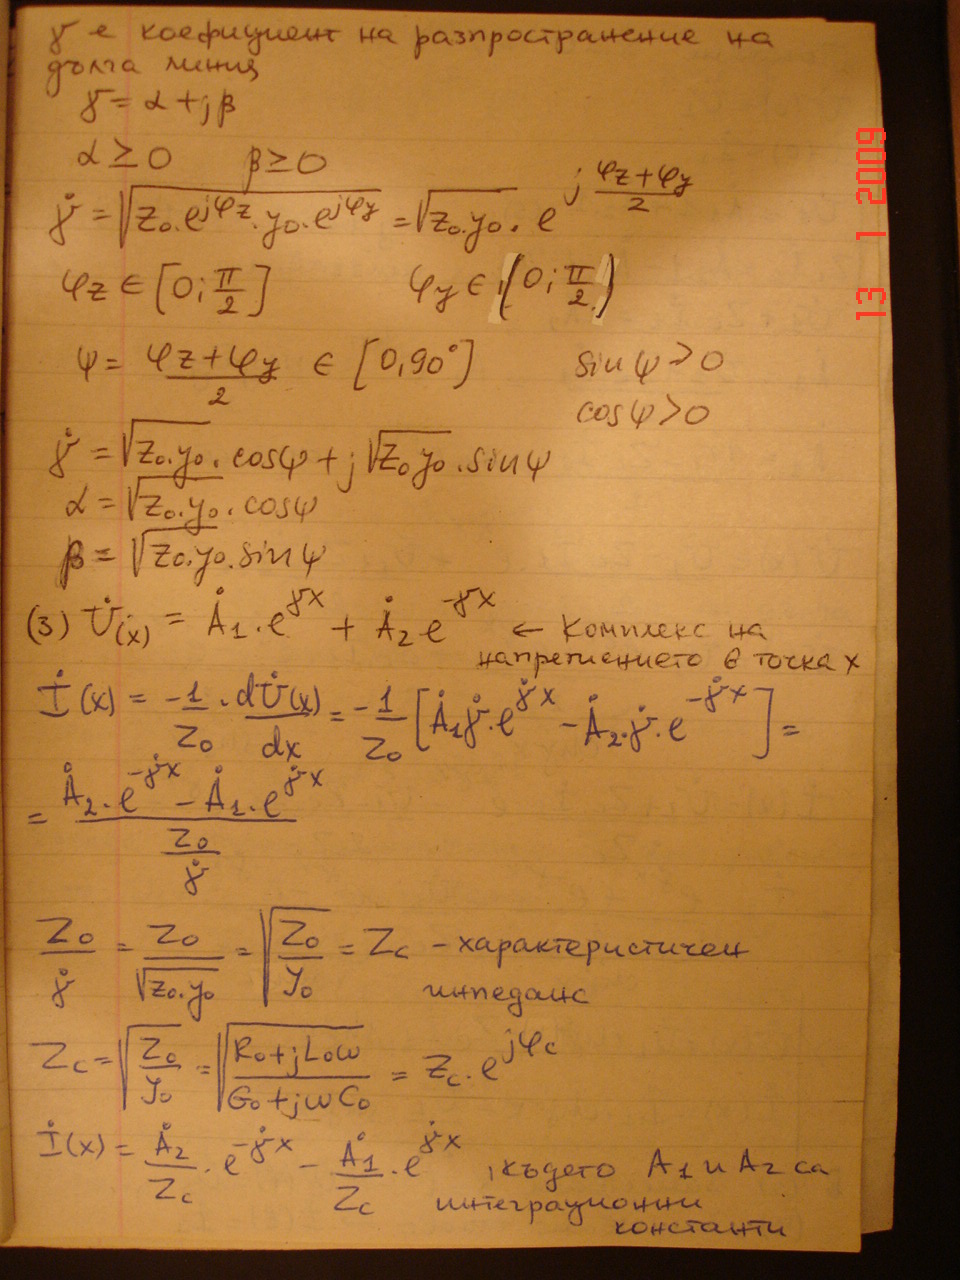 γ е коефициент на разпространение на
дълга линия
γ = α + jβ
α ≥ 0 β ≥ 0
γ̇ = √(z₀.e^(jφz).y₀.e^(jφy)) = √(z₀.y₀) . e^(j (φz+φy)/2)
φz ∈ [0; π/2] φy ∈ (0; π/2)
ψ = (φz+φy)/2 ∈ [0,90°] sinψ > 0
cosψ > 0
γ̇ = √(z₀.y₀) . cosψ + j√(z₀y₀) . sinψ
α = √(z₀.y₀) . cosψ
β = √(z₀.y₀) . sinψ
(3) U̇(x) = Ȧ₁.e^(γx) + Ȧ₂e^(-γx) ← Комплекс на
напрежението в точка x
İ(x) = -1/Z₀ . dU̇(x)/dx = -1/Z₀ [Ȧ₁γ̇.e^(γ̇x) - Ȧ₂.γ̇.e^(-γ̇x)] =
= (Ȧ₂.e^(-γ̇x) - Ȧ₁.e^(γ̇x)) / (Z₀/γ̇)
Z₀/γ̇ = Z₀/√(Z₀.y₀) = √(Z₀/Y₀) = Zc - характеристичен
импеданс
Zc = √(Z₀/Y₀) = √((R₀+jL₀ω)/(G₀+jωC₀)) = Zc.e^(jφc)
İ(x) = Ȧ₂/Zc . e^(-γ̇x) - Ȧ₁/Zc . e^(γ̇x) , където A₁ и A₂ са
интеграционни
константи
13 1 2009